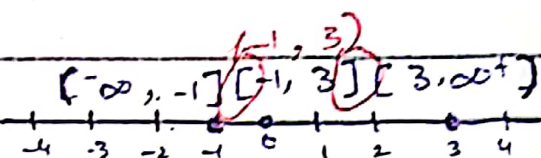 (-1, 3)
[-∞, -1] [-1, 3] [3, ∞+]
-4 -3 -2 -1 0 1 2 3 4